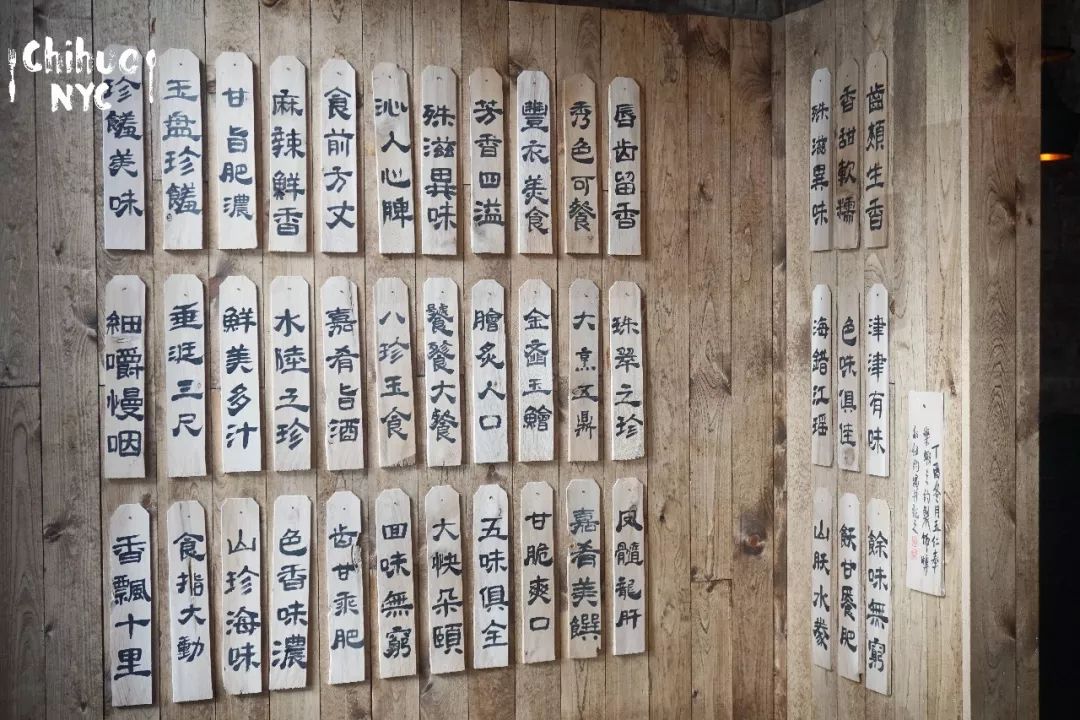 Chihuo
NYC
珍饈美味
玉盘珍饈
甘旨肥濃
麻辣鮮香
食前方丈
沁人心脾
殊滋異味
芳香四溢
豐衣美食
秀色可餐
唇齿留香
殊滋異味
香甜軟糯
齒頰生香
細嚼慢咽
垂涎三尺
鮮美多汁
水陸之珍
嘉肴旨酒
八珍玉食
饕餮大餐
膾炙人口
金齏玉鱠
大烹五鼎
珠翠之珍
海錯江瑤
色味俱佳
津津有味
香飄十里
食指大動
山珍海味
色香味濃
齿甘乘肥
回味無窮
大快朵頤
五味俱全
甘脆爽口
嘉肴美饌
凤髓龍肝
山肤水豢
飫甘饜肥
餘味無窮
丁酉冬月五仁奉